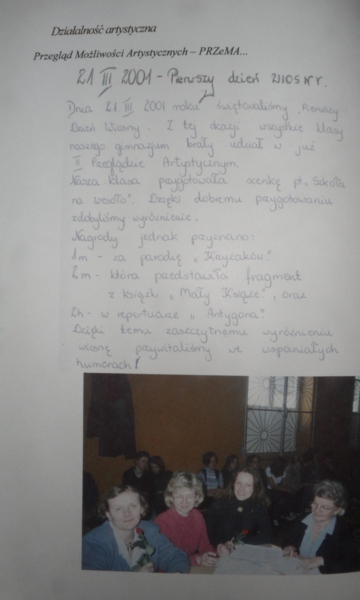 Działalność artystyczna
Przegląd Możliwości Artystycznych – PRZeMA...
21 III 2001 – Pierwszy dzień wiosny.
Dnia 21 III 2001 roku świętowaliśmy Pierwszy
Dzień Wiosny. Z tej okazji wszystkie klasy
naszego gimnazjum brały udział w już
II Przeglądzie Artystycznym.
Nasza klasa przygotowała scenkę pt. „Szkoła
na wesoło". Dzięki dobremu przygotowaniu
zdobyliśmy wyróżnienie.
Nagrody jednak przyznano:
1m – za parodię „Krzyżaków"
2m – która przedstawiła fragment
z książki „Mały Książę", oraz
2h – w repertuarze „Antygona"
Dzięki temu zaszczytnemu wyróżnieniu
wiosnę przywitaliśmy we wspaniałych
humorach!